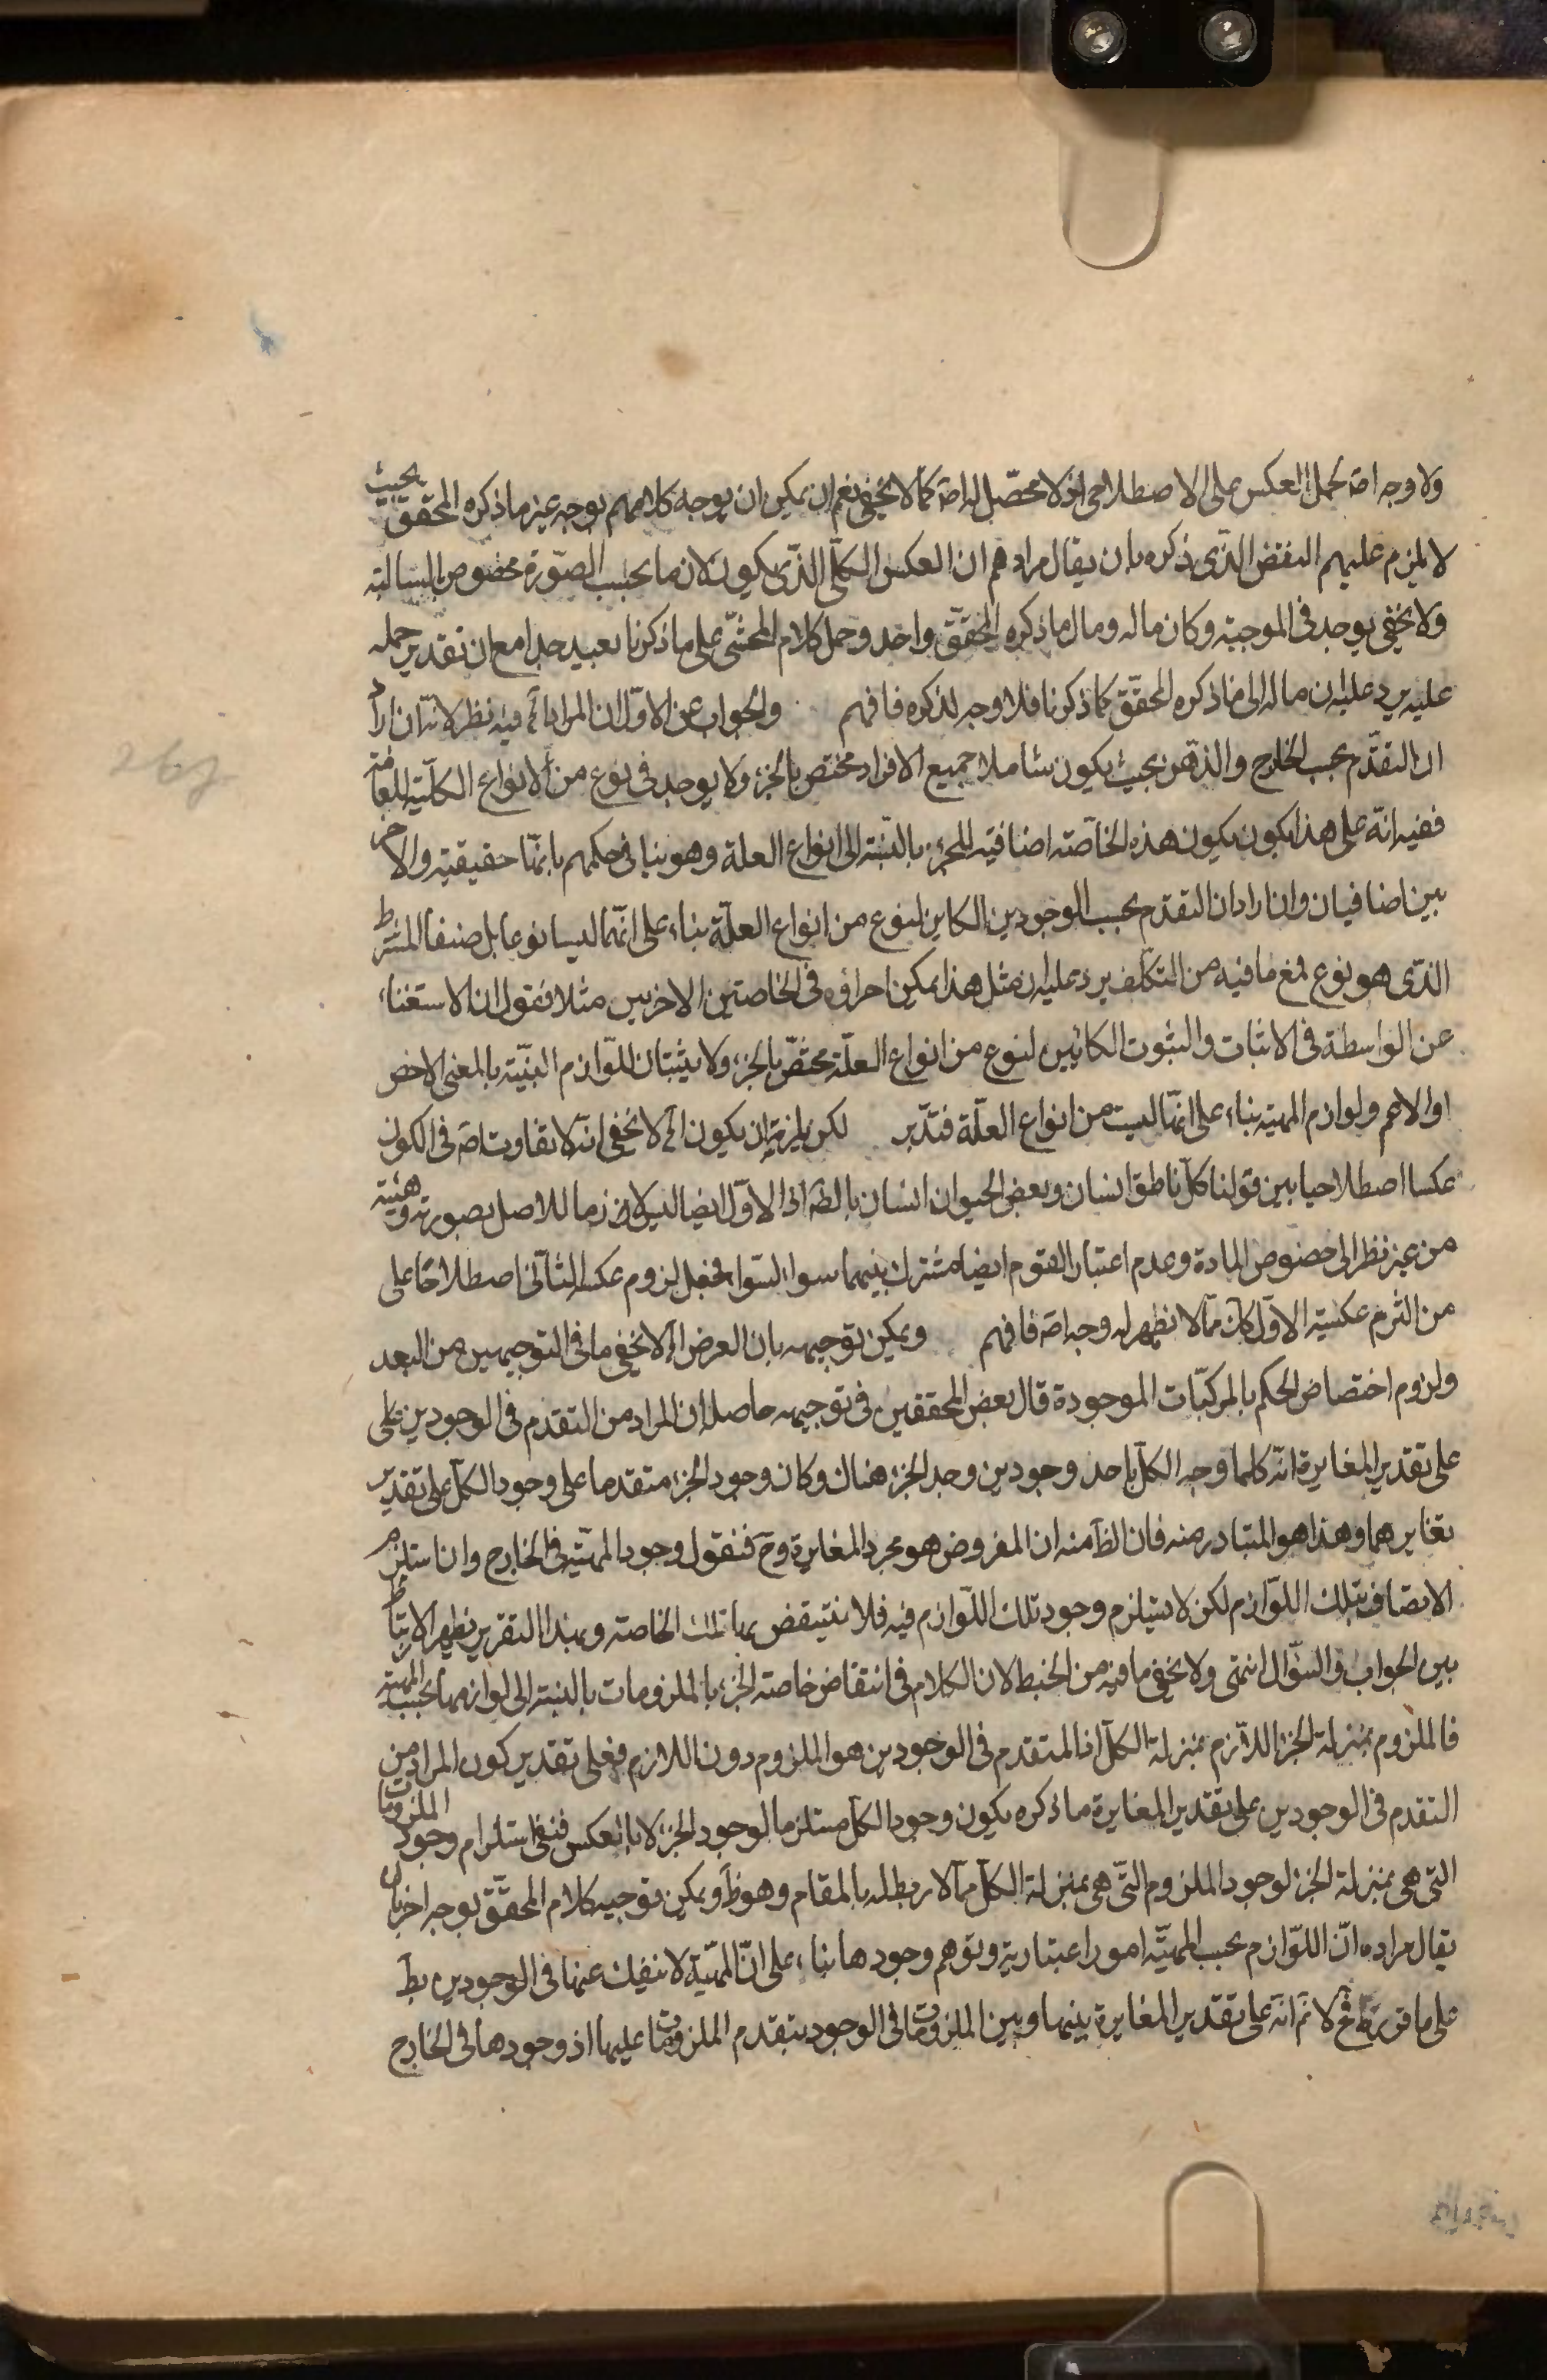 ولا وجه اصلا لحمل العكس على الاصطلاحى اذ لا محصّل له اصلا كما لا يخفى نعم ان يمكن ان يوجه كلامهم بوجه غير ما ذكره المحقق بحيث
لا يلزم عليهم النقض الذّى ذكره بان يقال مرادهم ان العكس الكلّى الذّى يكون لازما بحسب الصّورة مخصوص بالسالبة
ولا يخفى يوجد فى الموجبة وكان ماله ومال ما ذكره المحقّق واحد وحمل كلام المحشّى على ما ذكرنا بعيد جدا مع ان تقدير حمله
عليه يرد عليه ان ماله الى ما ذكره المحقّق كما ذكرنا فلا وجه لذكره فافهم والجواب عن الاوّل ان المراد بالخ فيه نظر لانه ان اراد
ان التقدّم بحسب الخارج والذهن بحيث يكون شاملا جميع الافراد مختص بالجزء ولا يوجد فى نوع من الانواع الكلّية للعلّة
ففيه انّه على هذا يكون يكون هذه الخاصّة اضافية للجزء بالنّسبة الى انواع العلة وهو ينافى حكمهم بانّها حقيقية والاخر
يين اضافيان وان اراد ان التقدم بحسب الوجودين الكاين لنوع من انواع العلّة بناء على انّهما ليسا نوعا بل صنفا المشرط
الذّى هو نوع فمع ما فيه من التكلّف يرد عليه ان مثل هذا يمكن اجراؤه فى الخاصتين الاخريين مثلا فنقول ان الاستغناء
عن الواسطة فى الاثبات والثبوت الكائين لنوع من انواع العلّة مختصّ بالجزء ولا يثبتان للّوازم البيّنة بالمعنى الاخص
او الاعم ولوازم المهية بناء على انّها ليست من انواع العلّة فتدّبر لكن يلزمه ان يكون الخ لا يخفى انّه لا تفاوت اصلا فى الكون
عكسا اصطلاحيا بين قولنا كلّ ناطق انسان وبعض الحيوان انسان بالظه اذ الاوّل ايضا ليس لازما للاصل بصورته وهيئته
من غير نظر الى خصوص المادة وعدم اعتبار القوم ايضا مشترك بينهما سواء بسواء فجعل لزوم عكسه الثّانى اصطلاحًا على
من التزم عكسية الاوّل كانه ممّا لا يظهر له وجه اصلا فافهم ويمكن توجيهه بان الغرض الخ لا يخفى ما فى التوجيهين من البعد
ولزوم اختصاص الحكم بالمركبّات الموجودة قال بعض المحققين فى توجيهه حاصله ان المراد من التقدم فى الوجودين على
على تقدير المغايرة انّه كلما وجد الكلّ باحد وجودين وجد الجزء هناك وكان وجود الجزء متقدما على وجود الكلّ على تقدير
تغايرهما وهذا هو المتبادر منه فان الظّ منه ان المفروض هو مجرد المغايرة وح فنقول وجود المهيّة فى الخارج وان استلزم
الاتصاف بتلك اللّوازم لكن لا يستلزم وجود تلك اللّوازم فيه فلا ينتقض بها تلك الخاصة وبهذا التقرير يظهر الارتباط
بين الجواب والسؤال انتهى ولا يخفى ما فيه من الخبط لان الكلام فى انتقاض خاصة الجزء بالملزومات بالنسبة الى لوازمها بحسب المهية
فالملزوم بمنزلة الجزء اللّازم بمنزلة الكلّ اذ المتقدم فى الوجودين هو الملزوم دون اللازم فعلى تقدير كون المراد من
التقدم فى الوجودين على تقدير المغايرة ما ذكره يكون وجود الكلّ مستلزما لوجود الجزء لا بالعكس فنفى استلزام وجود الملزومات
التى هى بمنزلة الجزء لوجود الملزوم التّى هى بمنزلة الكلّ ممّا لا ربط له بالمقام وهو ظّ ويمكن توجيه كلام المحقّق بوجه اخر بان
يقال مراده انّ اللّوازم بحسب المهيّة امور اعتبارية وتوهم وجودها بناء على انّ المهيّة لا ينفك عنها فى الوجودين بط
على ما قررط فح لا نم انّه على تقدير المغايرة بينها وبين الملزومات فى الوجود يتقدم الملزومات عليها اذ وجودها فى الخارج